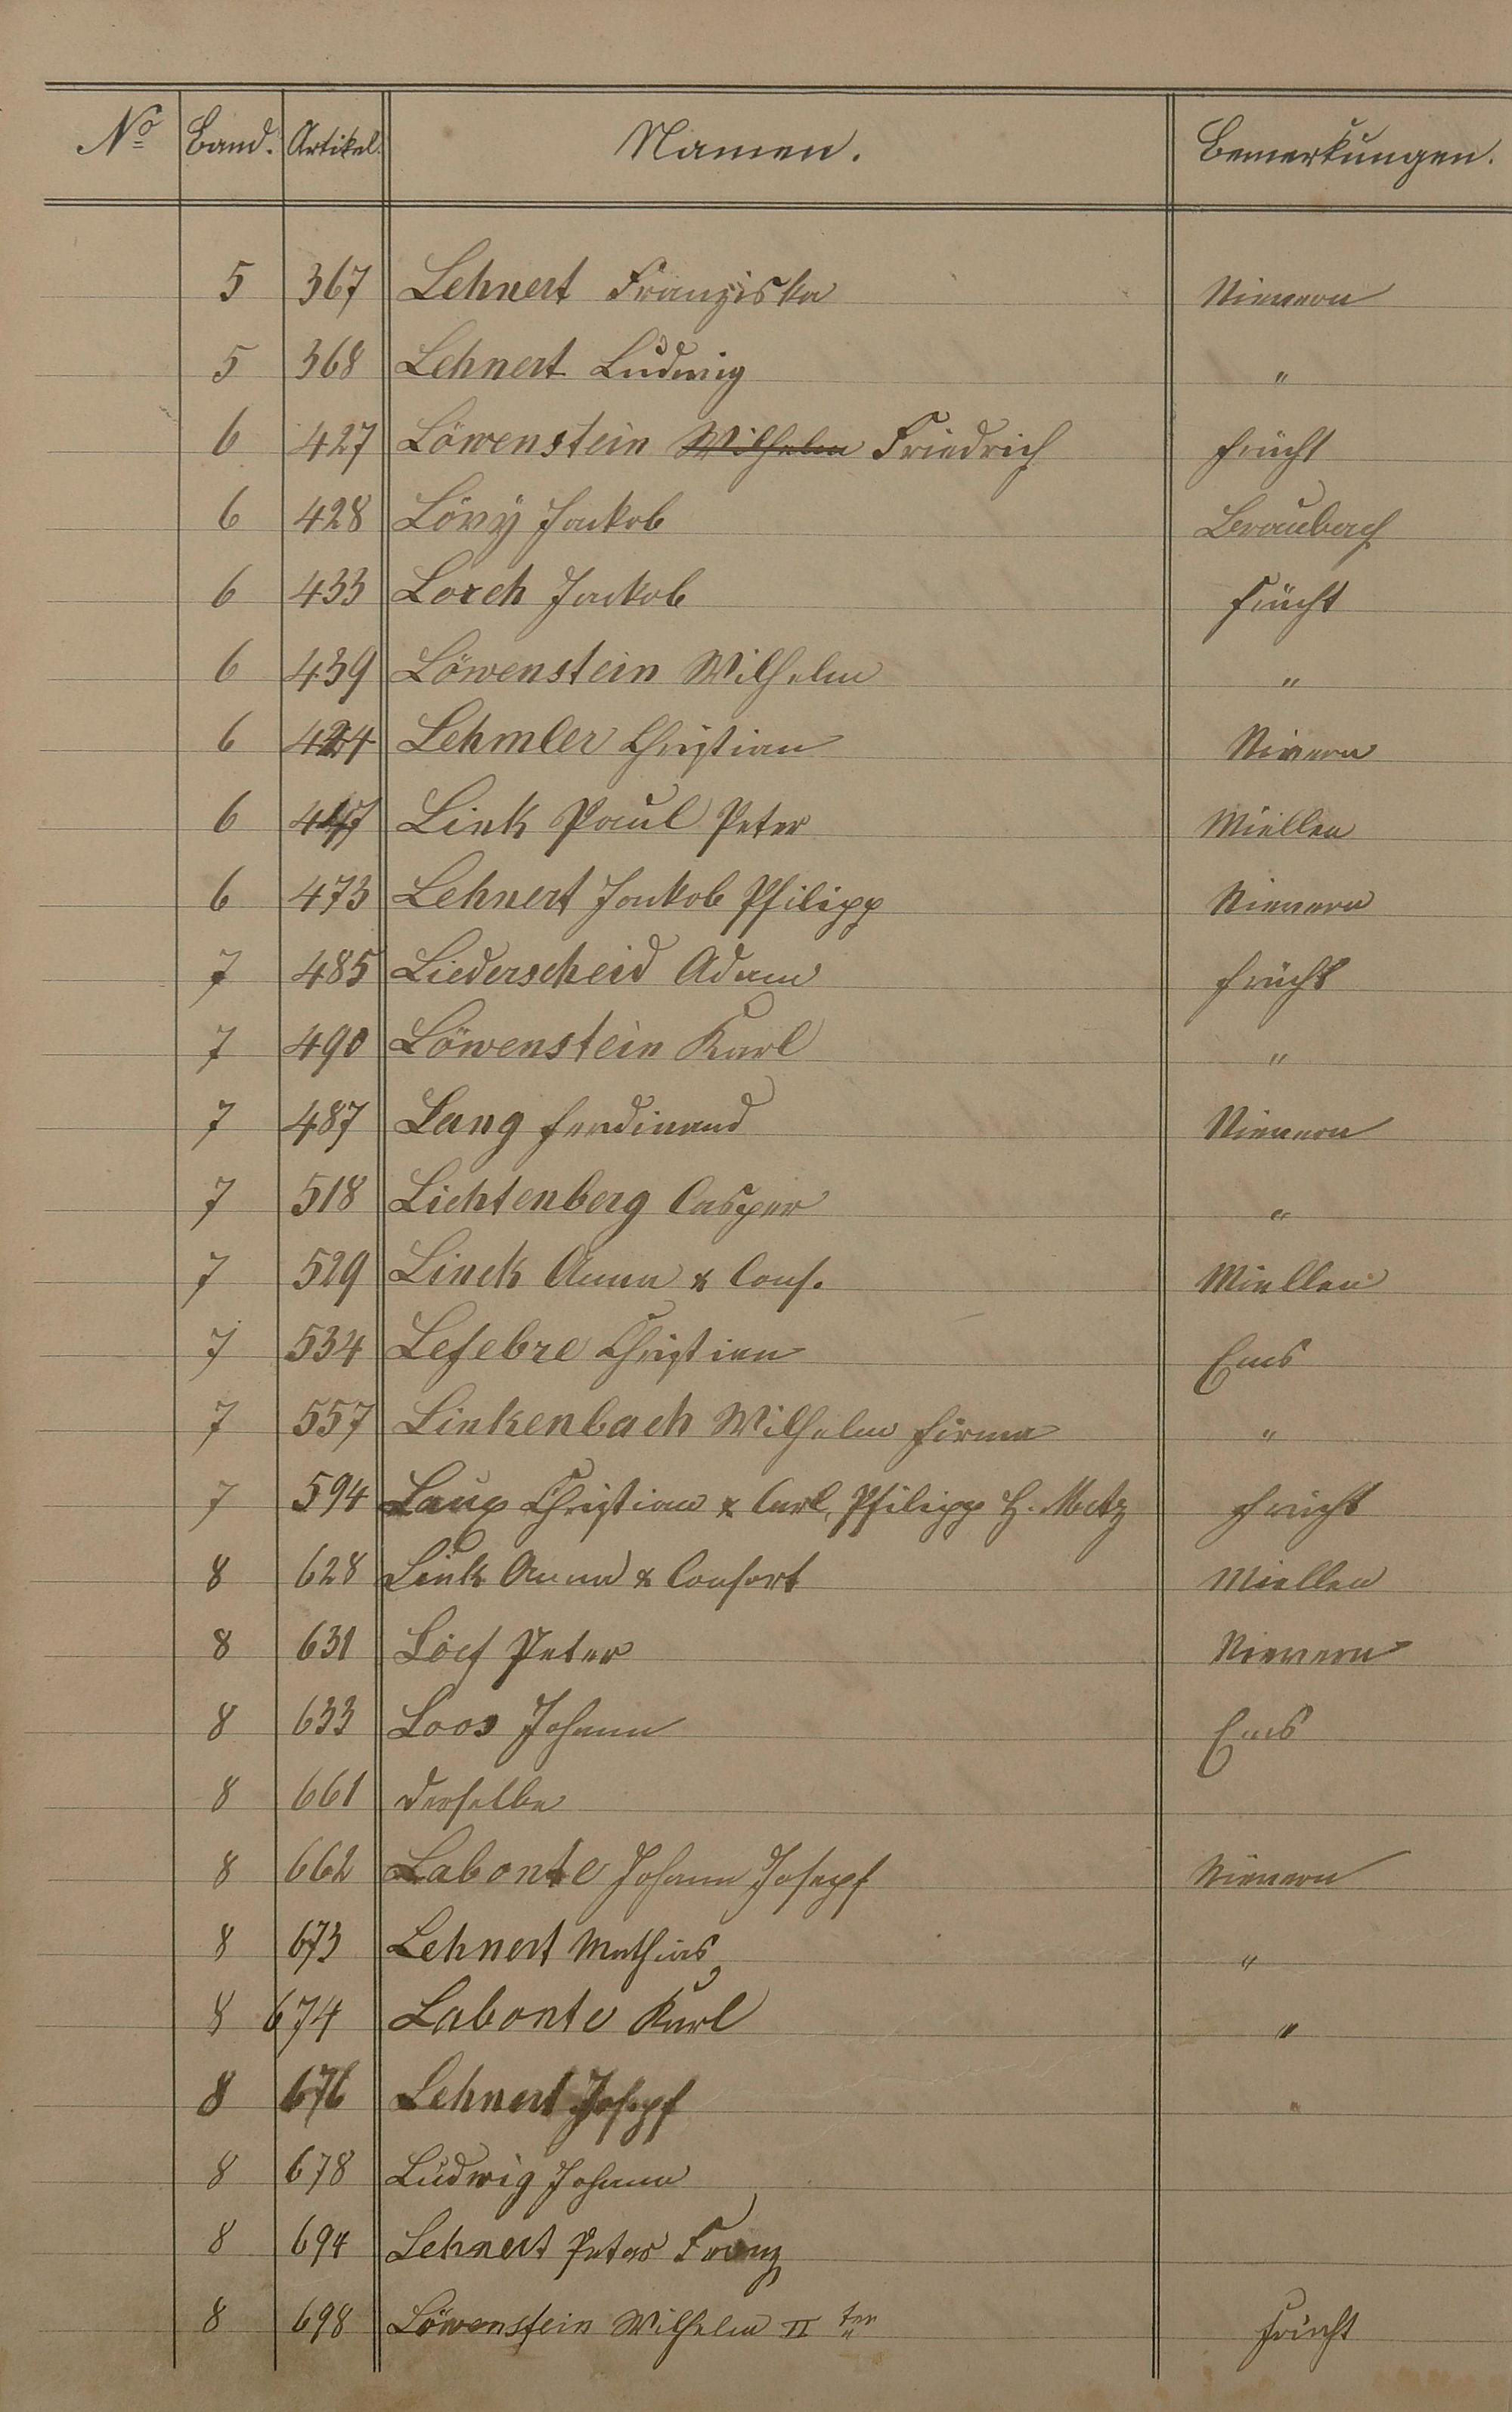 No Band. Artikel. Namen. Bemerkungen.
5 367 Lehnert Franziska Nievern
5 368 Lehnert Ludwig "
6 427 Löwenstein Wilhelm Friedrich Frücht
6 428 Lövÿ Jackob Braubach
6 433 Lorch Jackob Frücht
6 439 Löwenstein Wilhelm "
6 Lehmler Christian Nivern
6 Link Paul Peter Miellen
6 473 Lehnert Jackob Philipp Nievern
7 485 Liederscheid Adam Frücht
7 490 Löwenstein Karl "
7 487 Lang Ferdinand Nievern
7 518 Lichtenberg Casper "
7 529 Linck Anna & Cons. Miellen
7 534 Lefebre Christian Ems
7 557 Linkenbach Wilhelm Firma "
7 594 Laux Christian & Carl, Philipp H. Metz Frücht
8 628 Link Anna & Consort Miellen
8 631 Peter Nievern
8 633 Loos Johann Ems
8 661 Derselbe
8 662 Labonte Johann Joseph Nievern
8 673 Lehnert Mathias "
8 674 Labonte Karl "
8 676 Lehnert Joseph "
8 678 Ludwig Johann
8 694 Lehnert Peter Franz
8 698 Löwenstein Wilhelm II ter Frücht